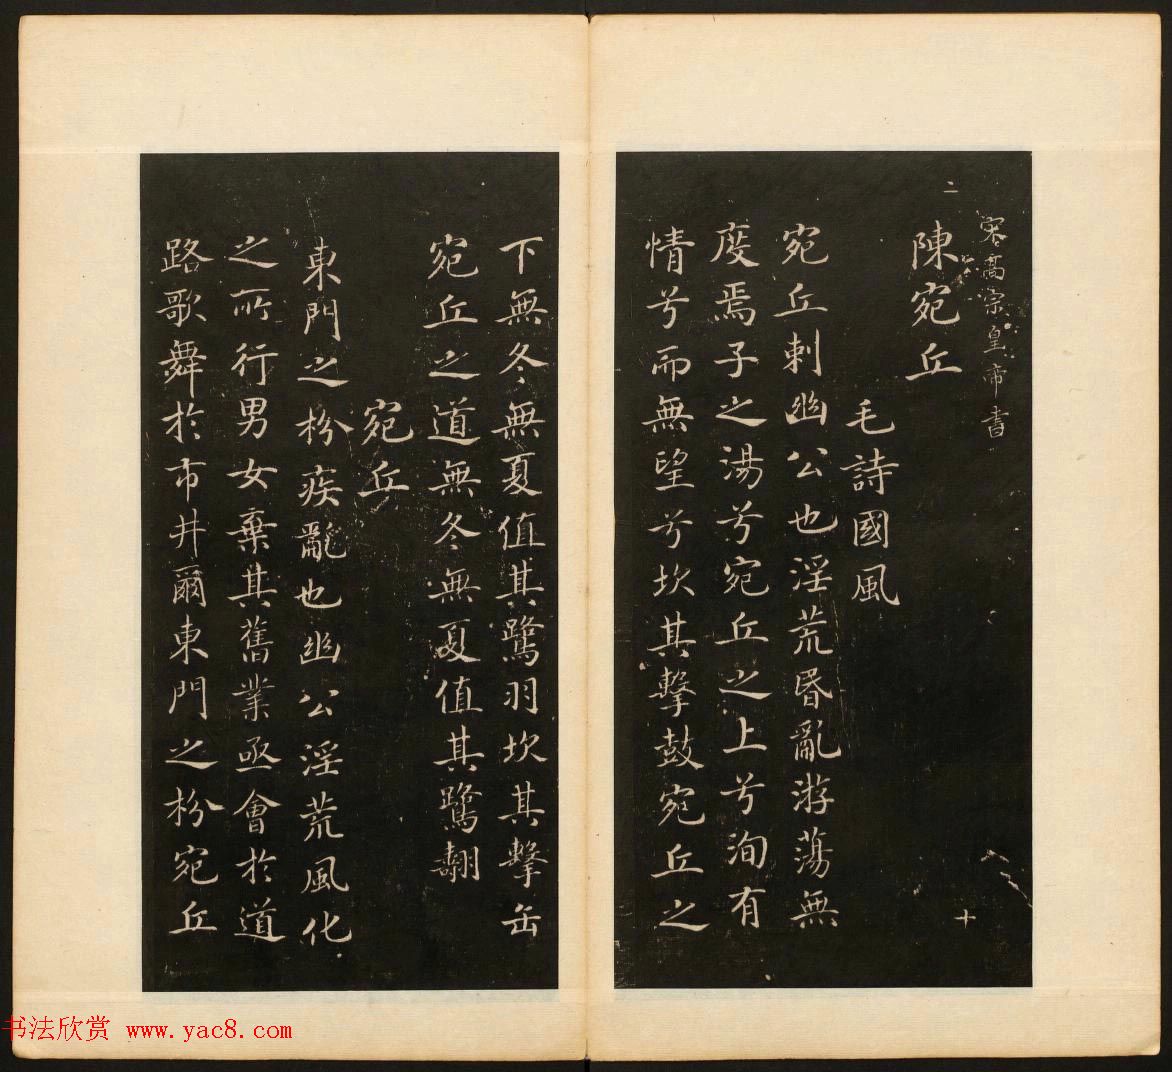 宋高宗皇帝書
二
十
陳宛丘
毛詩國風
宛丘刺幽公也淫荒昏亂游蕩無
度焉子之湯兮宛丘之上兮洵有
情兮而無望兮坎其擊鼓宛丘之
下無冬無夏值其鷺羽坎其擊缶
宛丘之道無冬無夏值其鷺翿
宛丘
東門之枌疾亂也幽公淫荒風化
之所行男女棄其舊業亟會於道
路歌舞於市井爾東門之枌宛丘
书法欣赏 www.yac8.com